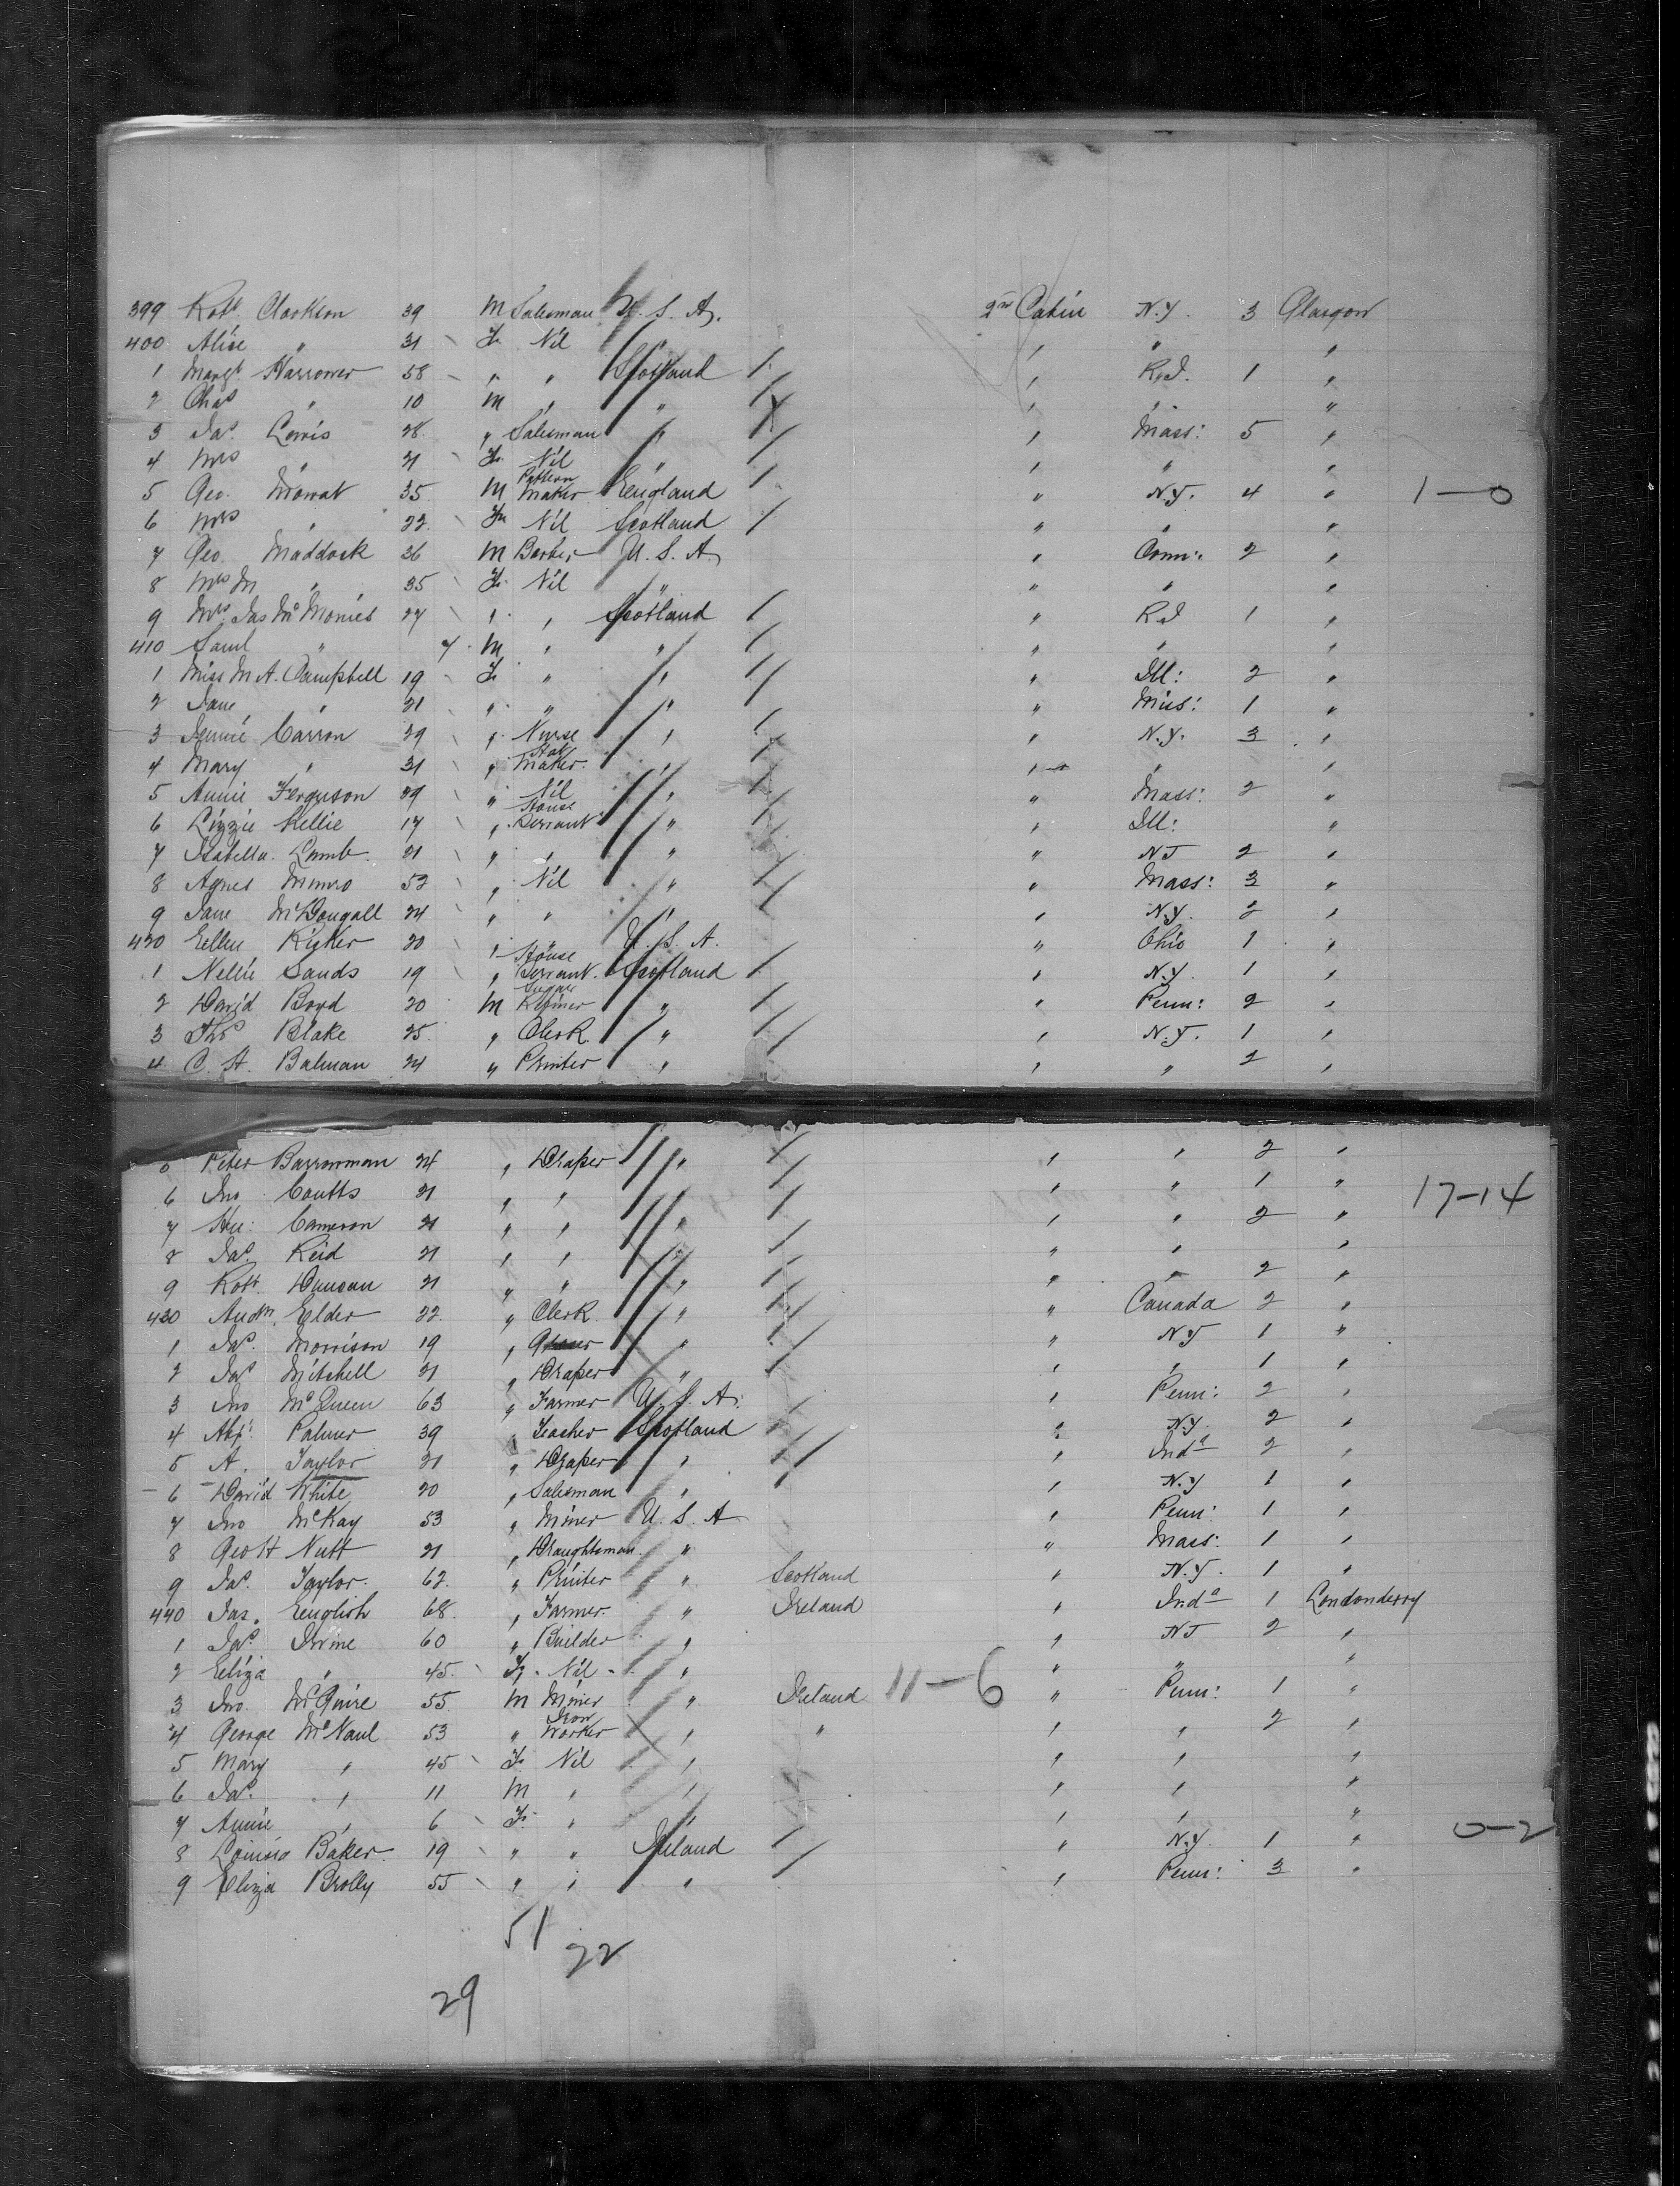 399 Robt. Clarkson 39 M Salesman U.S.A. 2nd Cabin N.Y. 3 Glasgow
400 Alice " 31 F. Nil " " "
1 Margt. Harrower 58 " " Scotland " R.I. 1 "
2 Chas " 10 M " " " " "
3 Jas. Lewis 28 " Salesman " " Mass: 5 "
4 Mrs " 21 F. Nil " " " "
5 Geo. Mowat 35 M Pattern Maker England " N.Y. 4 " 1-0
6 Mrs " 22 F. Nil Scotland " " "
7 Geo. Maddock 36 M Barber U.S.A. " Conn: 2 "
8 Mrs M " 35 F. Nil " " " "
9 Mrs. Jas 27 " " Scotland " R.I 1 "
410 Saml " 7 M " " " " "
1 Miss M.A. Campbell 19 F. " " " Ill: 2 "
2 Jane " 21 " " " " 1 "
3 Jennie Carron 29 " Nurse " " N.Y. 3 "
4 Mary " 31 " Maker " " " "
5 Annie Ferguson 29 " Nil " " Mass: 2 "
6 Lizzie Kellie 17 " House Servant " " Ill: "
7 Isabella Lamb 21 " " " " NJ 2 "
8 Agnes Munro 53 " Nil " " Mass: 3 "
9 Jane McDougall 24 " " " " N.Y. 2 "
420 Ellen 20 " U.S.A. " Ohio 1 "
1 Nellie Sands 19 " House Servant. Scotland " N.Y. 1 "
2 David Boyd 20 M Sugar Refiner " " Penn: 2 "
3 Thos Blake 25 " Clerk " " N.Y. 1 "
4 C. H. Balman 24 " Printer " " " 2 "
Peter Barrowman 24 " Draper " " " 2 "
6 Jno Coutts 21 " " " " 1 " 17-14
7 Cameron 21 " " " " " 2 "
8 Jas. Reid 21 " " " " " "
9 Robt. Duncan 21 " " " " " 2 "
430 Andw. Elder 22 " Clerk " " Canada 2 "
1 Jas. Morrison 19 " " " NY 1 "
2 Jas Mitchell 21 " Draper " " " 1 "
3 Jno McQueen 63 " Farmer U.S.A. " Penn: 2 "
4 Palmer 39 " Teacher Scotland " N.Y. 2 "
5 A. Taylor 21 " Draper " " Inda 2 "
6 David White 20 " Salesman " " N.Y 1 "
7 Jno McKay 53 " Miner U.S.A " Penn: 1 "
8 Geo H Nutt 21 " Draughtsman " " Mass: 1 "
9 Jas. Taylor 62 " Printer " Scotland " N.Y. 1 "
440 Jas. English 68 " Farmer " Ireland " Inda 1 Londonderry
1 Jas. Irvine 60 " Builder " " NJ 2 "
2 Eliza " 45 F. Nil " " " "
3 Jno. McGuire 55 M Miner " Ireland 11-6 " Penn: 1 "
4 George McNaul 53 " Iron Worker " " " " 2 "
5 Mary " 45 F. Nil " " " "
6 Jas. " 11 M " " " " "
7 Annie " 6 F. " " " " "
8 Baker 19 " " Ireland " N.Y. 1 " 0-2
9 Eliza Brolly 55 " " " " Penn: 3 "
51
22
29